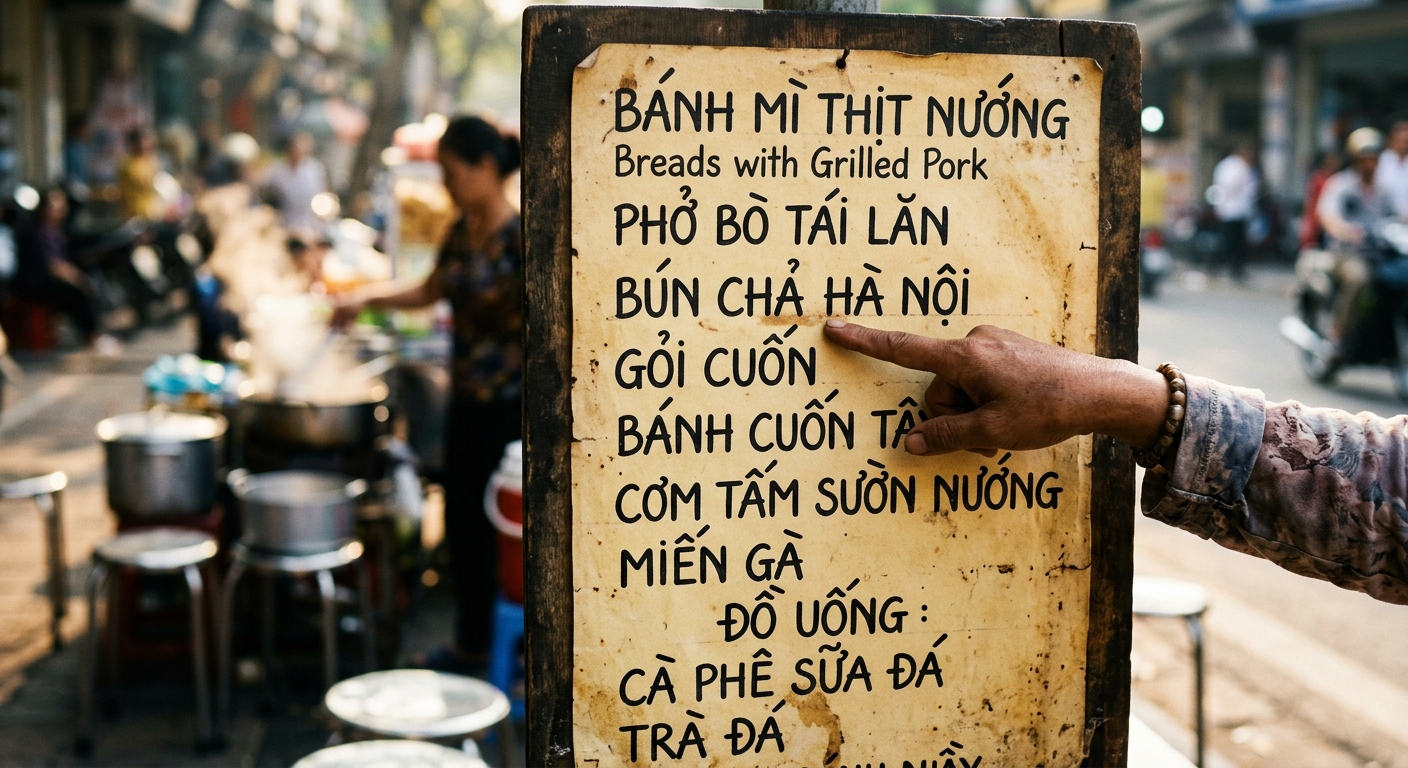 BÁNH MÌ THỊT NƯỚNG
Breads with Grilled Pork
PHỞ BÒ TÁI LĂN
BÚN CHẢ HÀ NỘI
GỎI CUỐN
BÁNH CUỐN
CƠM TẤM SƯỜN NƯỚNG
MIẾN GÀ
ĐỒ UỐNG :
CÀ PHÊ SỮA ĐÁ
TRÀ ĐÁ